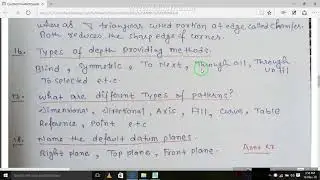 where as triangular cutted portion at edge called chamfer.
Both reduces the sharp edge of corner.
16. Types of depth providing methods.
Blind, Symmetric, To Next, Through all, Through
Up till
To selected e.t.c
17. What are different Types of patterns?
Dimensional, Directional, Axis, Fill, Curve, Table
Reference, Point e.t.c
18. Name the default datum planes.
Right plane, Top plane, Front plane.